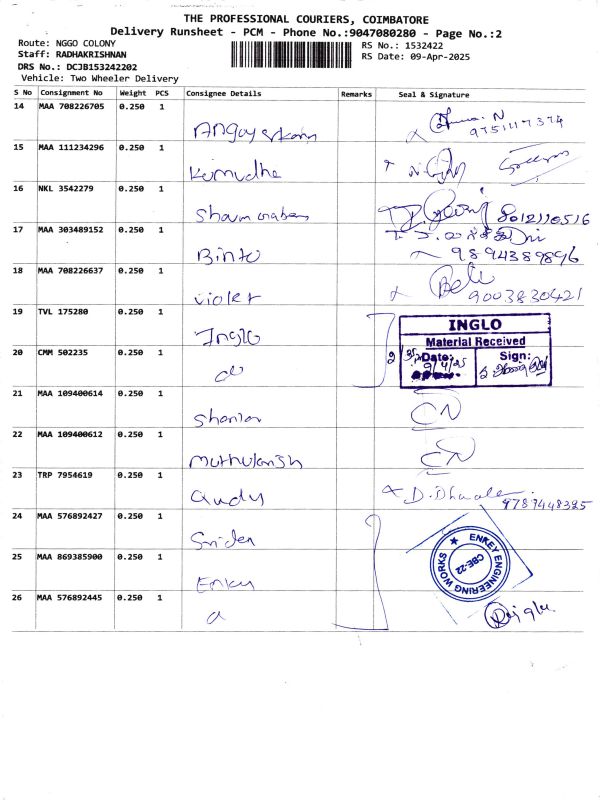 THE PROFESSIONAL COURIERS, COIMBATORE
Delivery Runsheet - PCM - Phone No.:9047080280 - Page No.:2
Route: NGGO COLONY
Staff: RADHAKRISHNAN
DRS No.: DCJB153242202
Vehicle: Two Wheeler Delivery
RS No.: 1532422
RS Date: 09-Apr-2025
S No Consignment No Weight PCS Consignee Details Remarks Seal & Signature
14 MAA 708226705 0.250 1
9751117374
15 MAA 111234296 0.250 1 Kumudha
16 NKL 3542279 0.250 1 8012110516
17 MAA 303489152 0.250 1 Binto
9894389896
18 MAA 708226637 0.250 1 violet
9003830421
19 TVL 175280 0.250 1 Inglo
INGLO
Material Received
Date: 9/4/25 Sign:
20 CMM 502235 0.250 1
21 MAA 109400614 0.250 1 CN
22 MAA 109400612 0.250 1 CN
23 TRP 7954619 0.250 1
9789448325
24 MAA 576892427 0.250 1
ENKEY ENGINEERING WORKS
CBE-22
25 MAA 869385900 0.250 1 Enkey
26 MAA 576892445 0.250 1